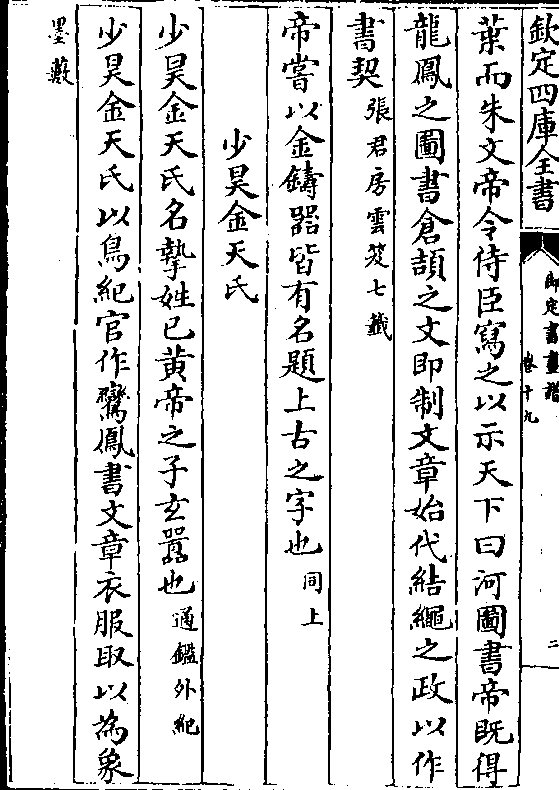 欽定四庫全書
御定書畫譜
卷十九
二
葉而朱文帝令侍臣寫之以示天下曰河圖書帝既得
龍鳳之圖書倉頡之文即制文章始代結繩之政以作
書契張君房雲笈七籤
帝嘗以金鑄器皆有名題上古之字也同上
少昊金天氏
少昊金天氏名摯姓已黄帝之子玄嚚也通鑑外紀
少昊金天氏以鳥紀官作鸞鳳書文章衣服取以為象
墨藪